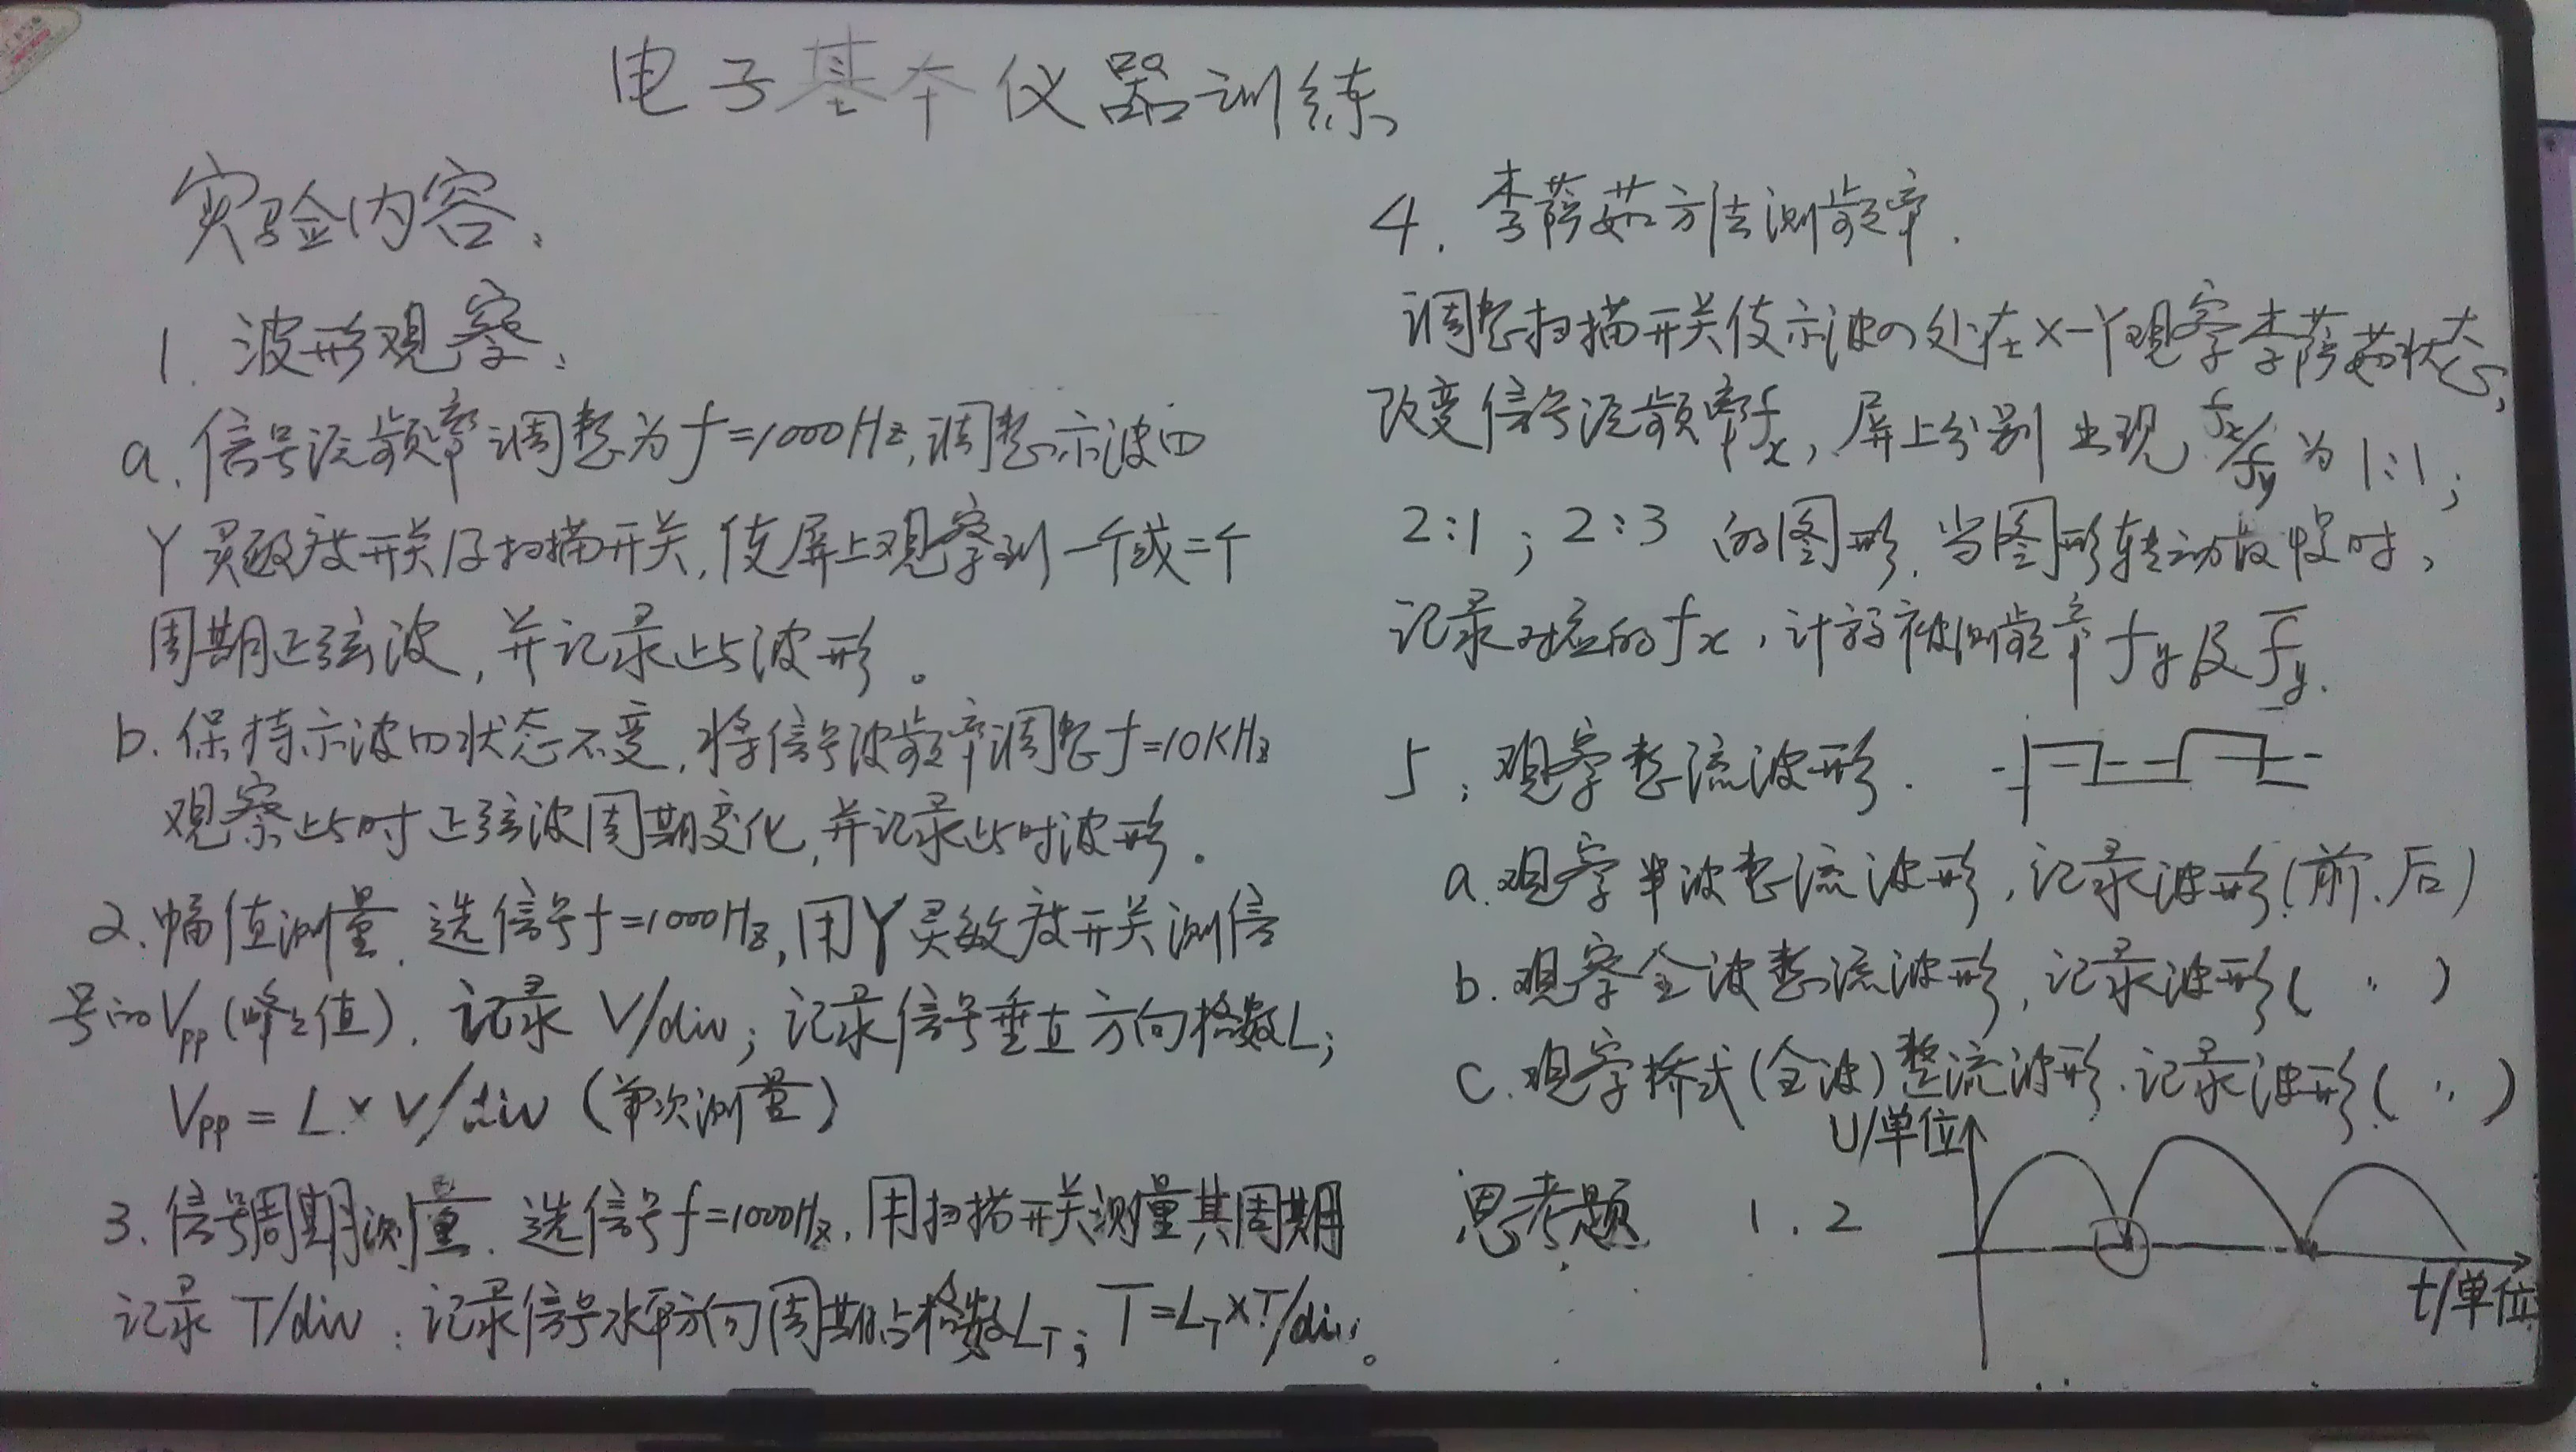 电子基本仪器训练
实验内容:
1. 波形观察:
a. 信号源频率调整为f=1000Hz,调整示波口
Y灵敏度开关及扫描开关,使屏上观察到一个或二个
周期正弦波,并记录此波形。
b. 保持示波口状态不变,将信号波频率调整f=10KHz
观察此时正弦波周期变化,并记录此时波形。
2. 幅值测量. 选信号f=1000Hz,用Y灵敏度开关测信
号的Vpp(峰峰值). 记录 V/div; 记录信号垂直方向格数L;
Vpp = L × V/div (单次测量)
3. 信号周期测量. 选信号f=1000Hz,用扫描开关测量其周期
记录 T/div; 记录信号水平方向周期占格数L_T; T=L_T×T/div。
4. 李萨茹方法测频率.
调整扫描开关使示波口处在X-Y观察李萨茹状态,
改变信号源频率fx,屏上分别出现fx/fy为1:1;
2:1; 2:3 的图形.当图形转动最慢时,
记录对应的fx,计算被测频率fy及f̅y.
5. 观察整流波形.
a. 观察半波整流波形,记录波形(前、后)
b. 观察全波整流波形,记录波形( 〃 )
c. 观察桥式(全波)整流波形.记录波形( 〃 )
U/单位
思考题 1. 2
t/单位